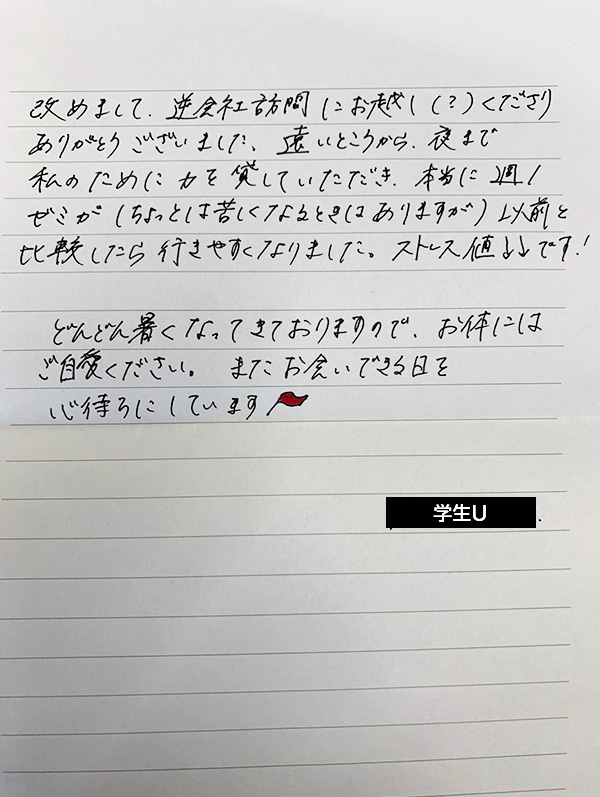 改めまして、逆会社訪問にお越し(?)くださり
ありがとうございました。遠いところから、夜まで
私のために力を貸していただき、本当に週1
ゼミが(ちょっとは苦しくなるときはありますが)以前と
比較したら行きやすくなりました。ストレス値↓↓です!
どんどん暑くなってきておりますので、お体には
ご自愛ください。またお会いできる日を
心待ちにしています
学生U